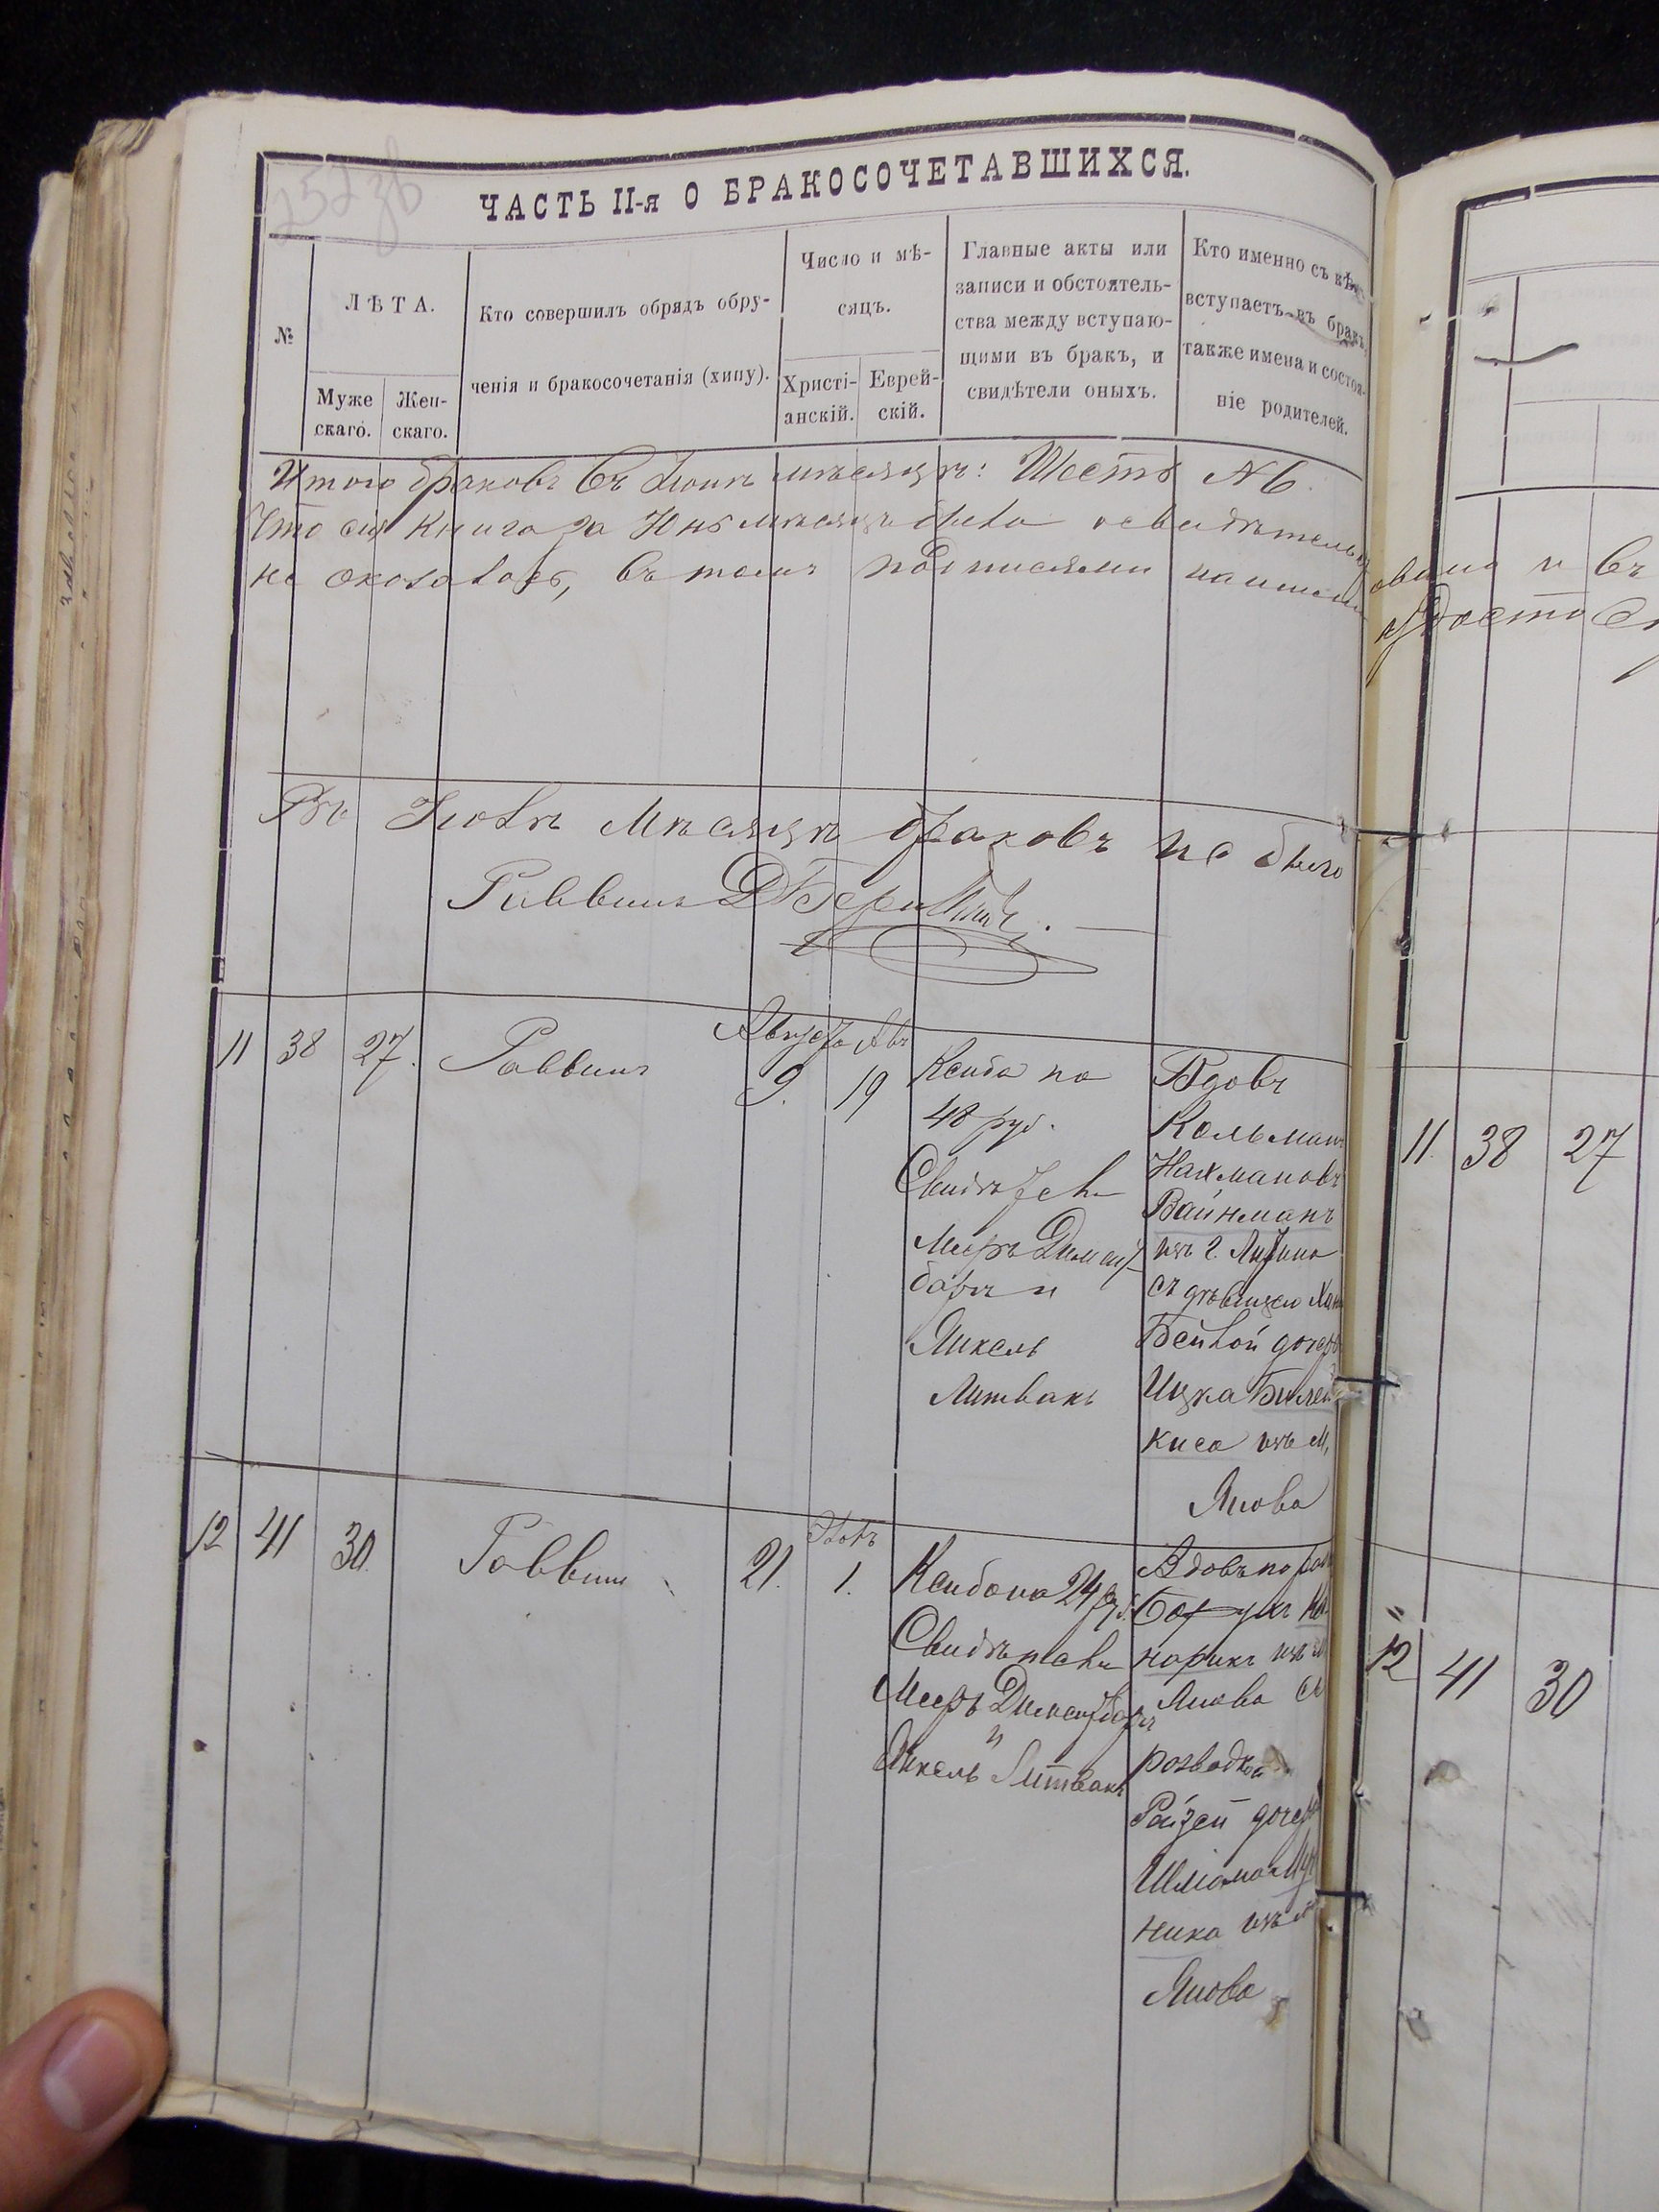 252 зв
ЧАСТЬ II-я О БРАКОСОЧЕТАВШИХСЯ.
№
ЛѢТА.
Муже
скаго.
Жен-
скаго.
Кто совершилъ обрядъ обру-
ченія и бракосочетанія (хипу).
Число и мѣ-
сяцъ.
Христі-
анскій.
Еврей-
скій.
Главные акты или
записи и обстоятель-
ства между вступаю-
щими въ бракъ, и
свидѣтели оныхъ.
Кто именно съ кѣмъ
вступаетъ въ бракъ,
также имена и состоя-
ніе родителей.
Итого браковъ въ Іюнѣ мѣсяцѣ: Шесть №6.
Что сія книга за Юнь мѣсяцъ была освидѣтельс
не оказалось, въ томъ подписями нашими
Въ Іюлѣ мѣсяцѣ браковъ не было
Раввинъ
11 38 27. Раввинъ
Августа Авъ
9. 19
Ксиба на
48 руб.
Свидѣтели
Мееръ Димент
барг и
Янкель
Литвакъ
Вдовъ
Кольманъ
Нахмановъ
Вайнманъ
изъ г. Литина
съ дѣвицею Хан
Бейлой дочерь
Ицка Билей
киса изъ м,
Янова
12 41 30. Раввинъ
21.
Элолъ
1.
Ксиба на 24 руб.
Свидѣтели
Мееръ Диментбаргъ
и
Янкель Литвакъ
Вдовъ по
Борухъ
норикъ изъ м
Янова съ
розводкой
Райзей дочерь
Шліома
ника изъ м
Янова
11. 38 27
12 41 30